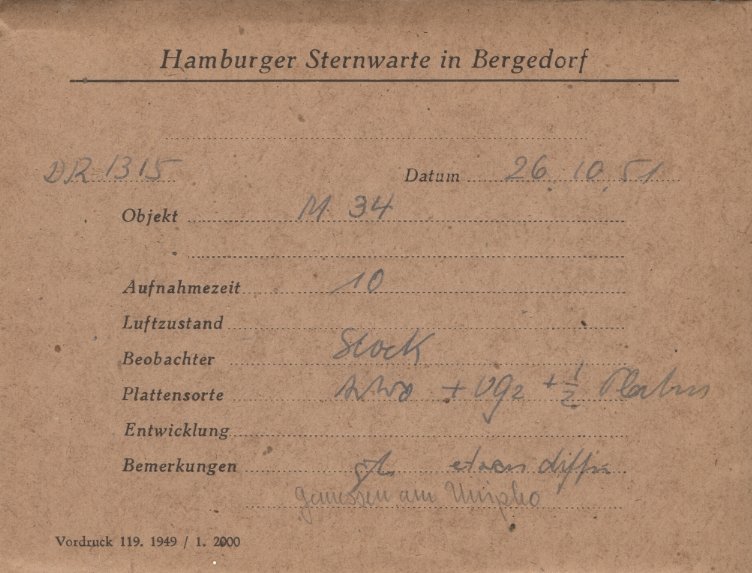 Hamburger Sternwarte in Bergedorf
DR 1315 Datum 26.10.51
Objekt M 34
Aufnahmezeit 10
Luftzustand
Beobachter Stock
Plattensorte + Vg2 + 1/2
Entwicklung
Bemerkungen etwas diffus
gemessen am
Vordruck 119. 1949 / 1. 2000